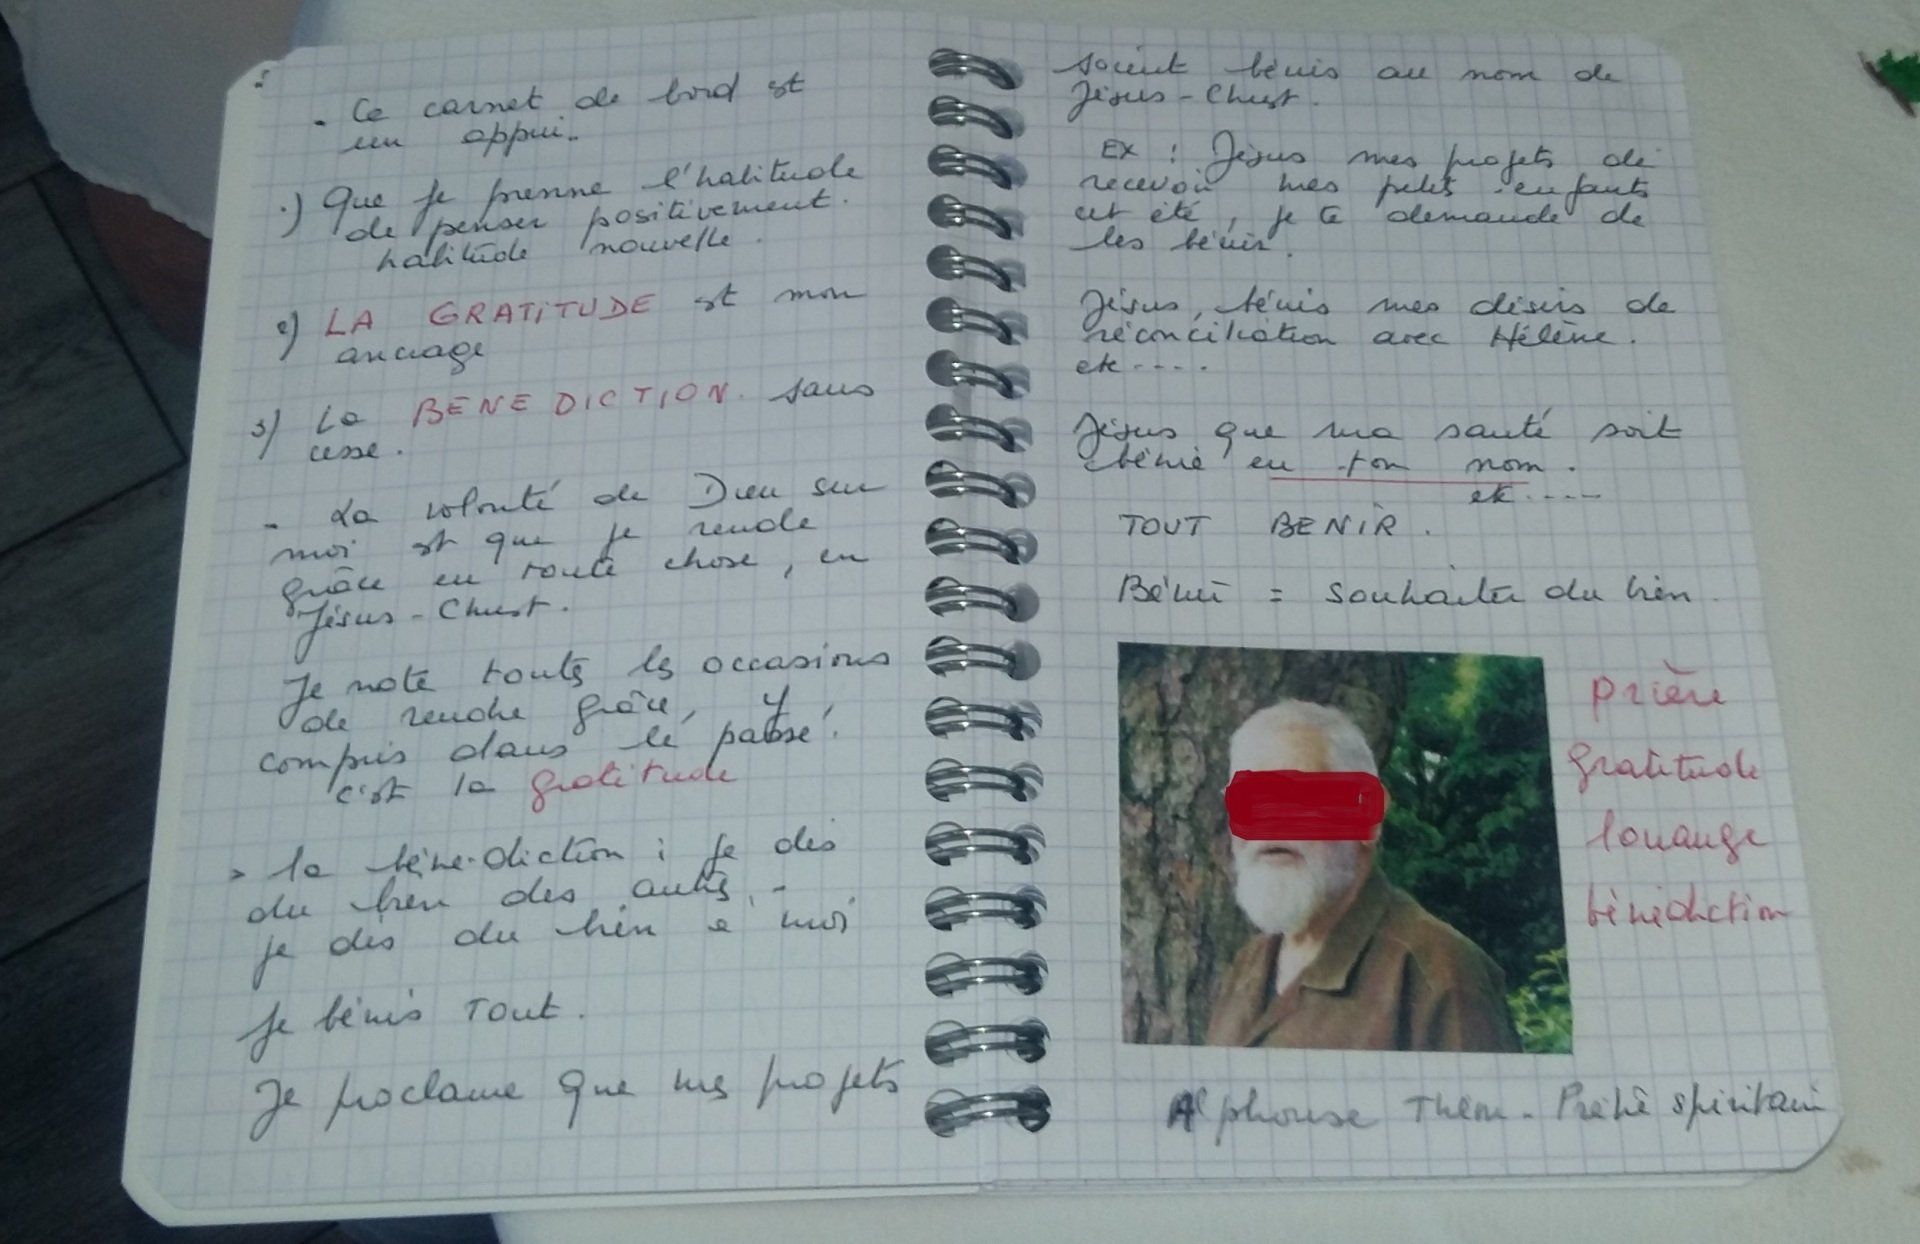 - Ce carnet de bord est
un appui.
.) Que je prenne l'habitude
de penser positivement.
habitude nouvelle.
2) LA GRATITUDE est mon
ancrage
3) La BENEDICTION. sans
cesse.
- La volonté de Dieu sur
moi est que je rende
grâce en toute chose, en
Jésus-Christ.
Je note toutes les occasions
de rendre grâce, y
compris dans le passé.
c'est la gratitude
> la béné-diction : je dis
du bien des autres, -
je dis du bien à moi
Je bénis Tout.
Je proclame que mes projets
soient bénis au nom de
Jésus-Christ.
EX : Jésus mes projets de
recevoir mes petits-enfants
cet été, je te demande de
les bénir.
Jésus, bénis mes désirs de
réconciliation avec Hélène.
etc....
Jésus que ma santé soit
bénie en ton nom.
etc....
TOUT BENIR.
Bénir = souhaiter du bien.
Prière
gratitude
louange
bénédiction
Alphonse Them - Prêtre spiritain